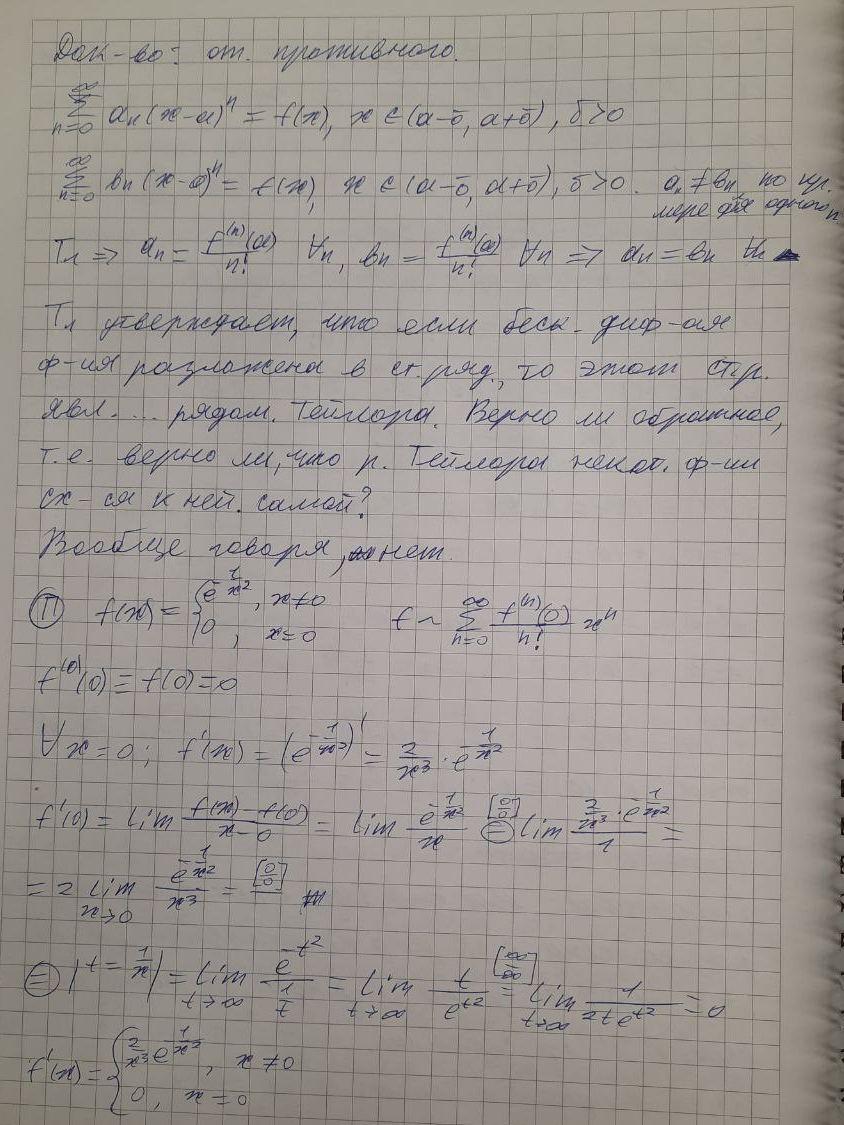 Док-во: от. противного.
∞ ∑ n=0 aₙ(x-a)ⁿ = f(x), x ∈ (a-δ, a+δ), δ>0
∞ ∑ n=0 bₙ(x-a)ⁿ = f(x), x ∈ (a-δ, a+δ), δ>0. aₙ ≠ bₙ, по кр.
мере для одного n
Т₁ => aₙ = f⁽ⁿ⁾(a)/n! ∀n, bₙ = f⁽ⁿ⁾(a)/n! ∀n => aₙ = bₙ ∀n
Т₁ утверждает, что если беск. диф-ая
ф-ия разложена в ст. ряд, то этот ст.р.
явл. ... рядом. Тейлора. Верно ли обратное,
т.е. верно ли, что р. Тейлора некот. ф-ии
сх-ся к ней. самой?
Вообще говоря, нет.
П f(x) = { e^(-1/x²), x≠0 f ~ ∞ ∑ n=0 f⁽ⁿ⁾(0)/n! xⁿ
0, x=0
f⁽⁰⁾(0) = f(0) = 0
∀x=0; f'(x) = (e^(-1/x²))' = 2/x³ · e^(-1/x²)
f'(0) = lim (f(x)-f(0))/(x-0) = lim e^(-1/x²)/x = [0/0] lim (2/x³ · e^(-1/x²))/1 =
= 2 lim x→0 e^(-1/x²)/x³ = [0/0]
= |t = 1/x| = lim t→∞ e^(-t²)/(1/t) = lim t→∞ t/e^(t²) = [∞/∞] lim t→∞ 1/(2te^(t²)) = 0
f'(x) = { 2/x³ e^(-1/x²), x≠0
0, x=0